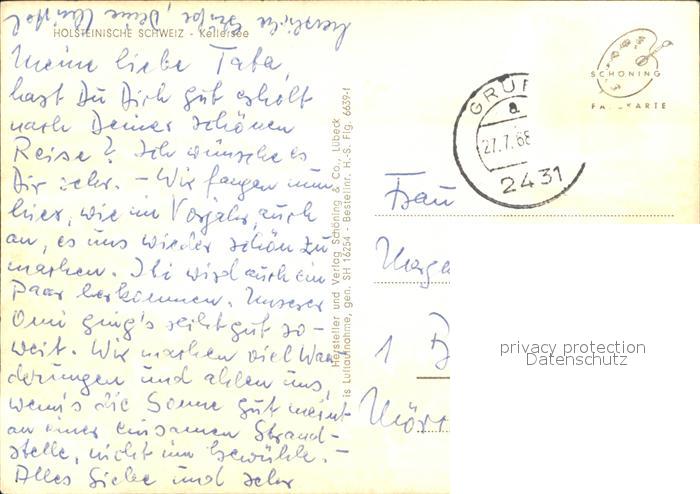 herzliche Grüße, Deine Christel
HOLSTEINISCHE SCHWEIZ - Kellersee
Meine liebe Tata,
hast Du Dich gut erholt
nach Deiner schönen
Reise? Ich wünsche es
Dir sehr. – Wir fangen nun
hier, wie im Vorjahr, auch
an, es uns wieder schön zu
machen. Ibi wird auch ein
Paar herkommen. Unserer
Omi ging's recht gut so-
weit. Wir machen viel Wan-
derungen und ahlen uns,
wenn's die Sonne gut meint
an einer einsamen Strand-
stelle, nicht im Gewühle. –
Alles Liebe und sehr
Hersteller und Verlag Schöning & Co., Lübeck
is Luftaufnahme, gen. SH 16254 - Bestellnr. H.-S. Flg. 6639-1
SCHÖNING
FARBKARTE
a
27.7.68
2431
Frau
1 B
privacy protection
Datenschutz